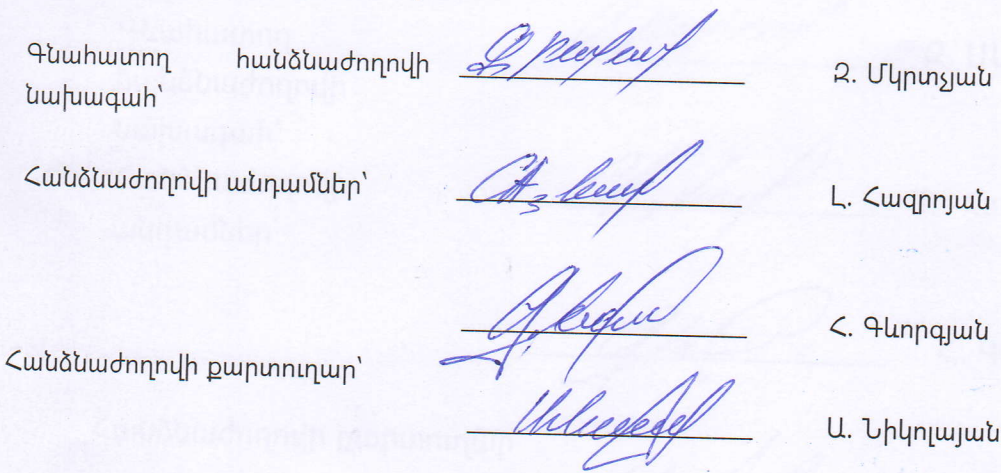 Գնահատող հանձնաժողովի Զ. Մկրտչյան
նախագահ՝
Հանձնաժողովի անդամներ՝ Լ. Հազրոյան
Հ. Գևորգյան
Հանձնաժողովի քարտուղար՝
Ա. Նիկոլայան